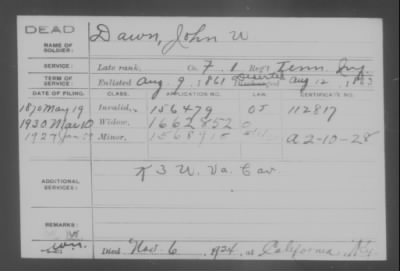 DEAD
NAME OF SOLDIER: Dawn, John W
SERVICE: Late rank, Co. F. 1 Reg't Tenn Inf.
TERM OF SERVICE: Enlisted Aug 9, 1861 Deserted Aug 12, 1863
DATE OF FILING. CLASS. APPLICATION NO. LAW. CERTIFICATE NO.
1870 May 19 Invalid, 156479 112817
1930 Mar 10 Widow, 1662852
1927 Minor, A2-10-28
ADDITIONAL SERVICES: K 3 W. Va. Cav
REMARKS:
Died Nov. 6 1924, at California, Ky.